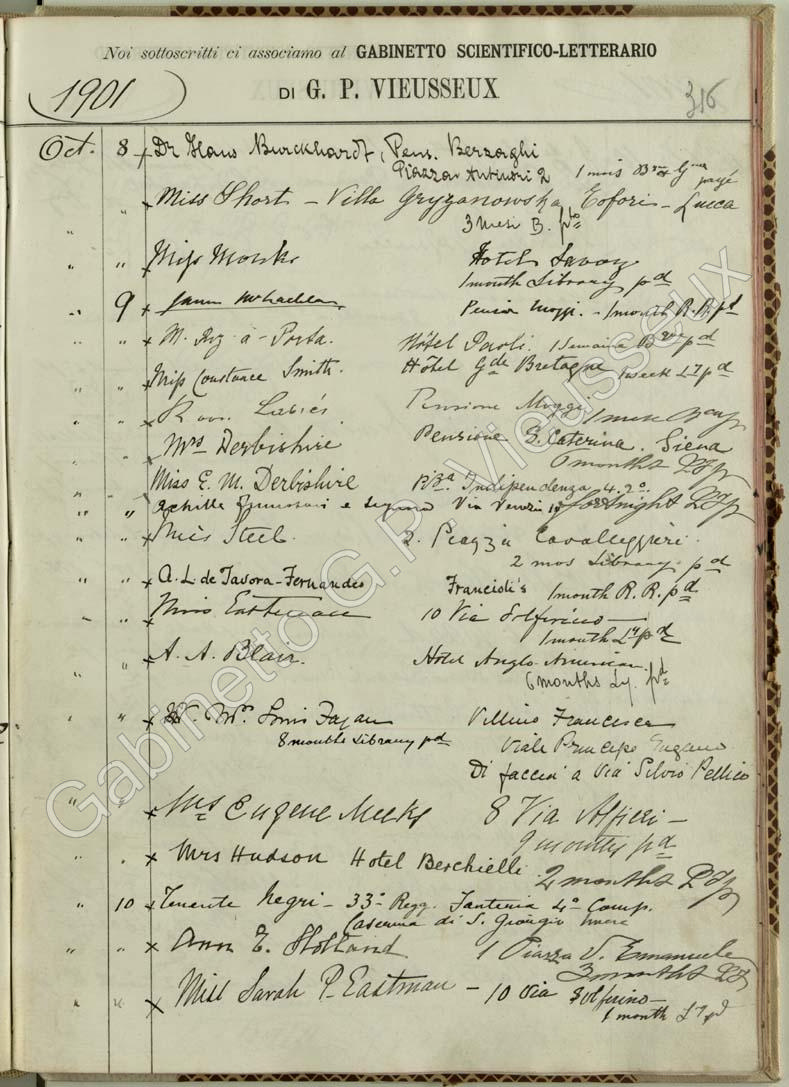 Noi sottoscritti ci associamo al GABINETTO SCIENTIFICO-LETTERARIO
DI G. P. VIEUSSEUX
1901
316
Oct. 8 x Dr Hans Burckhardt, Pens. Berzaghi
Piazza Antinori 2 1 mois payé
" x Miss Short - Villa Gryzanowska - Lucca
3 mesi B.
" " x Miss Monks Hotel Savoy
1 month Library pd
9 x Pension Moggi. - 1 month R.R. pd
" " x M. à-Porta. Hôtel Paoli. 1 Semaine pd
" " x Miss Constance Smith. Hôtel Gde Bretagne 1 week Ly pd
" x R von Pensione Moggi 1 mese
" x Mrs Derbishire Pensione S. Caterina. Siena
6 months
" x Miss E. M. Derbishire Pza Indipendenza 4. 2o.
fortnight
" " x Achille e Signora Via Venezia
" " x Miss Steel 2. Piazza Cavalleggieri
2 mos Library pd
" " x A. L. de Tavora-Fernandes Francioli's 1 month R. R. pd
" " x Miss Eastman 10 Via Solferino
1 month Ly pd
" " x A. A. Blair. Hotel Anglo-American
6 months Ly. pd
" " x Mrs Louis Fagan Villino Francesca
8 months Library pd Viale Principe Eugenio
Di faccia a Via Silvio Pellico
" " x Mrs Eugene Meeks 8 Via Alfieri -
9 months pd
" " x Mrs Hudson Hotel Berchielli
2 months
" 10 x Tenente Negri - 33o Regg. Fanteria 4a Comp.
Caserma di S. Giorgio
" " x Ann E. Holland 1 Piazza V. Emanuele
3 months
" " x Miss Sarah P. Eastman - 10 Via Solferino -
1 month Ly pd
Gabinetto G.P. Vieusseux